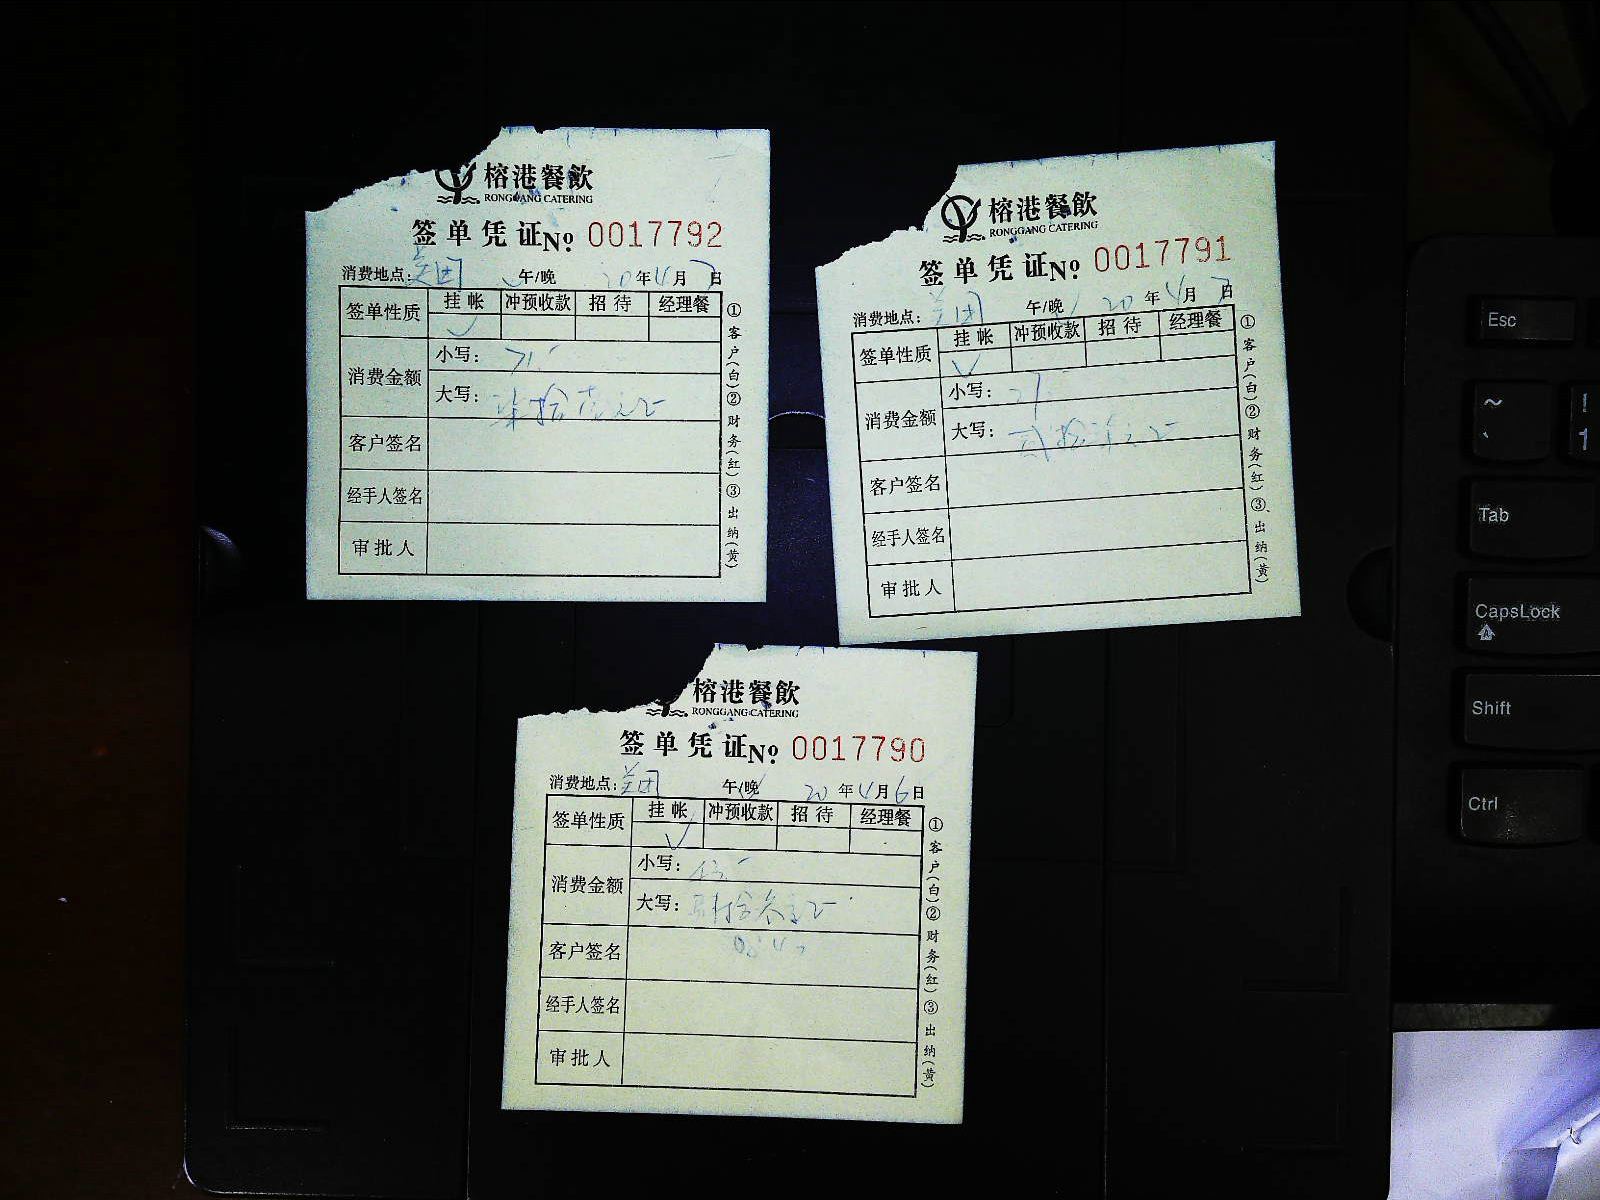 榕港餐飲
RONGGANG CATERING
签单凭证№ 0017792
消费地点：美团 午/晚 20年4月7日
签单性质 挂帐 冲预收款 招待 经理餐
✓
消费金额 小写：71.-
大写：柒拾壹元正
客户签名
经手人签名
审批人
①客户(白)②财务(红)③出纳(黄)
榕港餐飲
RONGGANG CATERING
签单凭证№ 0017791
消费地点：美团 午/晚 20年4月7日
签单性质 挂帐 冲预收款 招待 经理餐
✓
消费金额 小写：27.
大写：贰拾柒元正
客户签名
经手人签名
审批人
①客户(白)②财务(红)③出纳(黄)
榕港餐飲
RONGGANG CATERING
签单凭证№ 0017790
消费地点：美团 午/晚 20年4月6日
签单性质 挂帐 冲预收款 招待 经理餐
✓
消费金额 小写：43.-
大写：肆拾叁元正
客户签名
经手人签名
审批人
①客户(白)②财务(红)③出纳(黄)
Esc
~
`
!
1
Tab
CapsLock
Shift
Ctrl